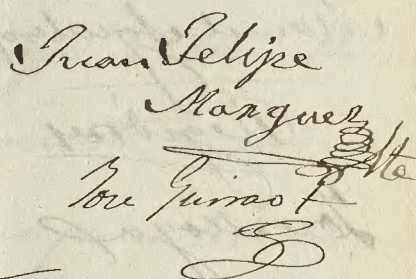 Juan Felipe
Marquez
Jose Guirao